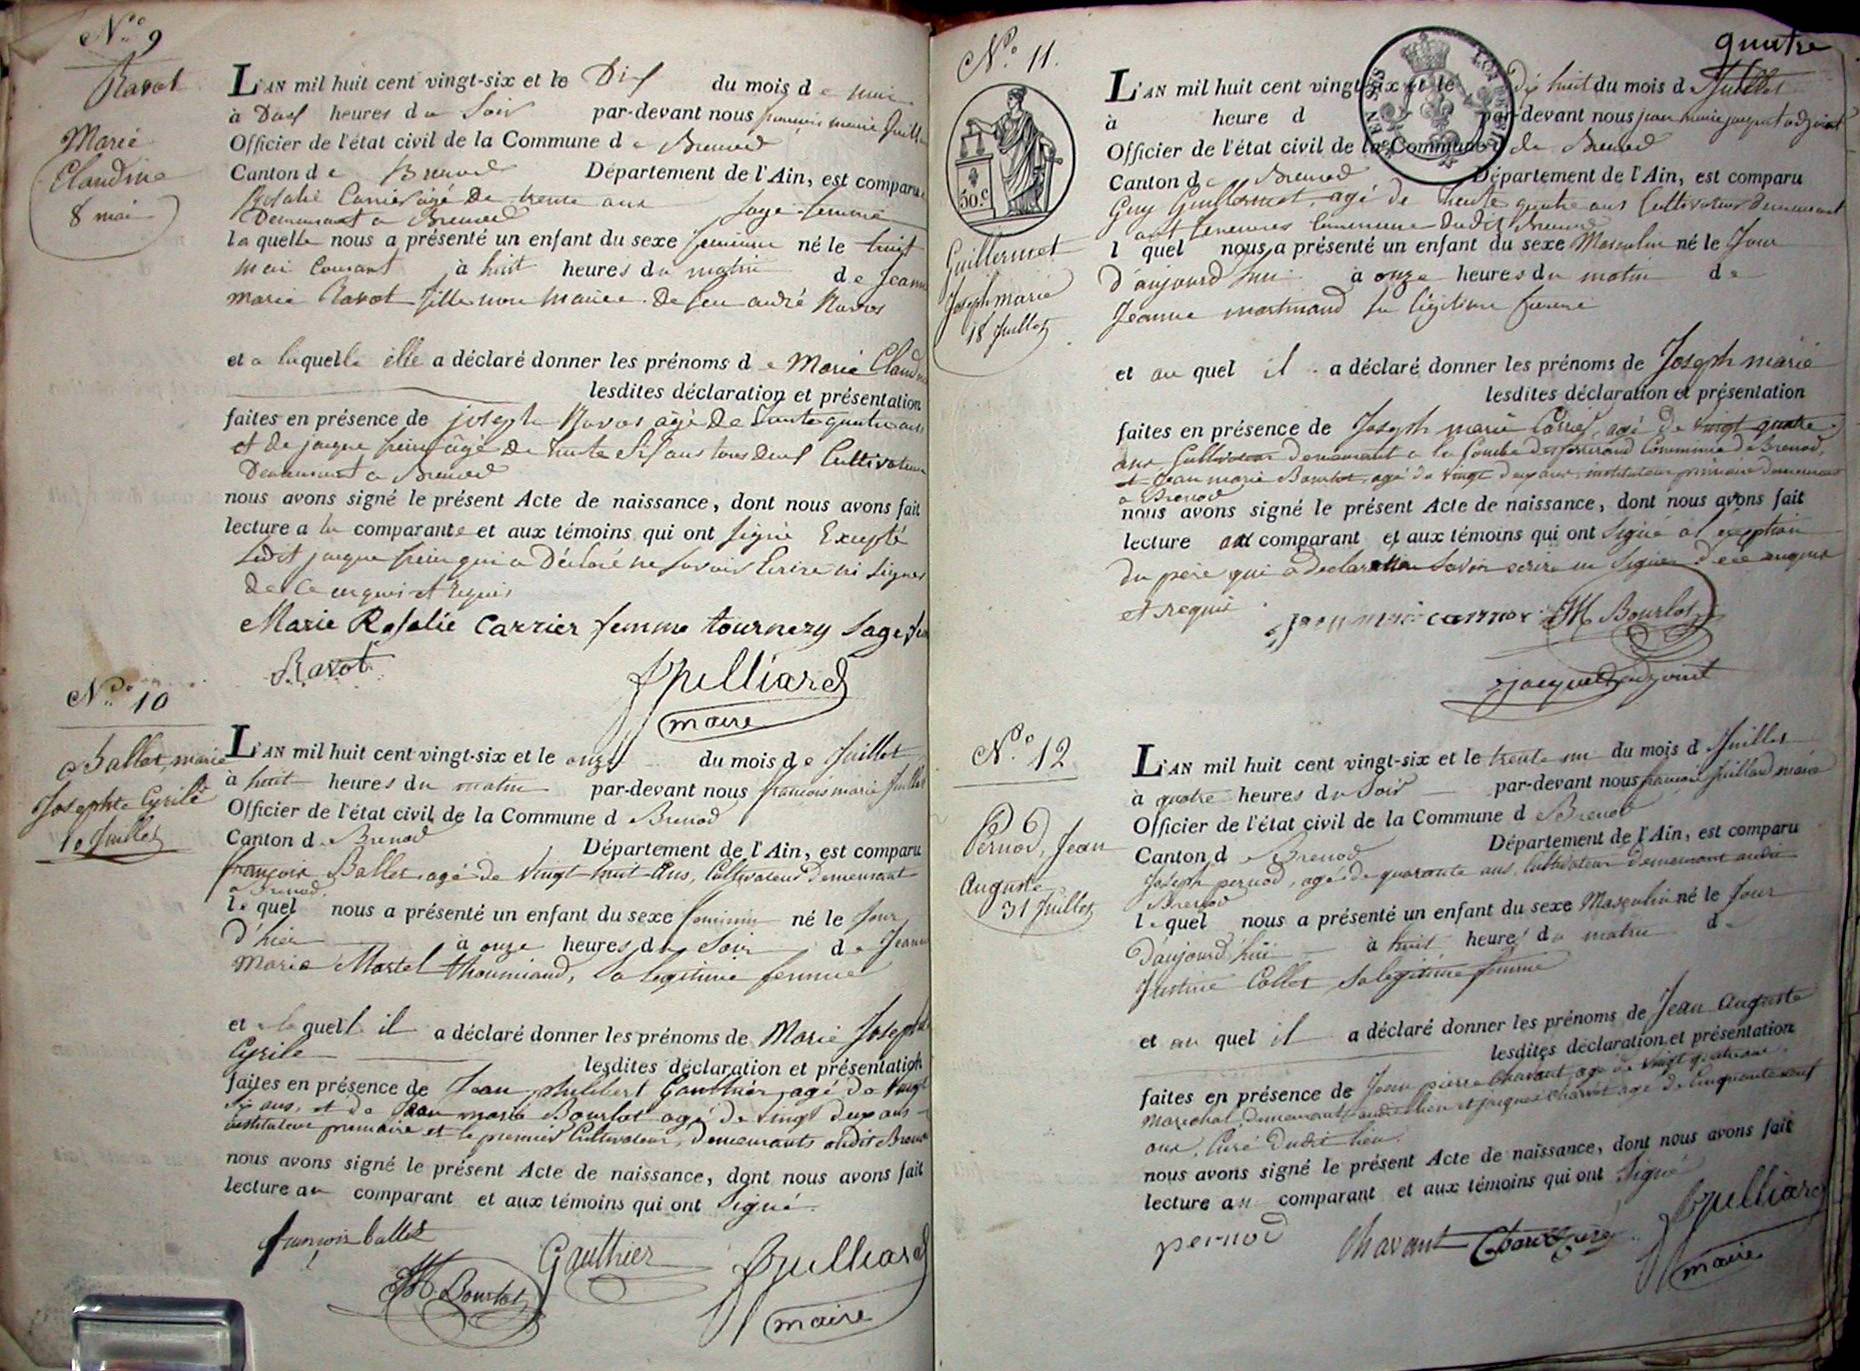 N.o 9
Ravot
Marie
Claudine
8 mai
L'AN mil huit cent vingt-six et le Dix du mois de mai
à Deux heures du Soir par-devant nous françois marie Juill
Officier de l'état civil de la Commune de Brenod
Canton de Brenod Département de l'Ain, est comparu
Rosalie Carrier âgé de trente ans sage femme
Demeurant a Brenod
laquelle nous a présenté un enfant du sexe feminin né le huit
mai Courant à huit heures du matin de Jeanne
marie Ravot fille non mariée de feu andré Ravot
et a laquelle elle a déclaré donner les prénoms de Marie Claudine
lesdites déclaration et présentation
faites en présence de joseph Ravot âgé de trente quatre ans
et de jacque âgé de trente Six ans tous deux Cultivateur
Demeurant a Brenod
nous avons signé le présent Acte de naissance, dont nous avons fait
lecture a la comparante et aux témoins qui ont signé Excepté
Ledit jacque qui a Déclaré ne Savoir Ecrire ni Signer
de Ce enquis et requis
Marie Rosalie Carrier femme tournery Sage fem
Ravot
Juilliard
maire
N.o 10
Ballet, marie
Josephte Cyrile
10 Juillet
L'AN mil huit cent vingt-six et le onze du mois de Juillet
à huit heures du matin par-devant nous françois marie Juillard
Officier de l'état civil de la Commune d Brenod
Canton d. Brenod Département de l'Ain, est comparu
françois Ballet, agé de Vingt huit Ans, Cultivateur demeurant
a Brenod
le quel nous a présenté un enfant du sexe feminin né le Jour
d'hier à onze heures du Soir de Jeanne
Marie Martel thoumiand, Sa legitime femme
et a la quell il a déclaré donner les prénoms de Marie Josephte
Cyrile lesdites déclaration et présentation
faites en présence de Jean philibert Gauthier, agé de Vingt
six ans, et de Jean marie Bourlot agé de vingt deux ans
instituteur primaire et le premier Cultivateur, demeurants audit Brenod
nous avons signé le présent Acte de naissance, dont nous avons fait
lecture au comparant et aux témoins qui ont Signé.
françois ballet
Gauthier
JM Bourlot
Juilliard
maire
quatre
N.o 11.
50.c
Guillermet
Joseph marie
18 Juillet
L'AN mil huit cent vingt-six et le dix huit du mois d Juillet
à heure d par-devant nous jean marie jacquet adjoint
Officier de l'état civil de la Commune de Brenod
Canton de Brenod Département de l'Ain, est comparu
Guy Guillermet, agé de trente quatre ans Cultivateur demeurant
Commune dudit Brenod
l quel nous a présenté un enfant du sexe Masculin né le Jour
d'aujourd'hui à onze heures du matin de
Jeanne martinand sa légitime femme
et au quel il a déclaré donner les prénoms de Joseph marie
lesdites déclaration et présentation
faites en présence de Joseph marie Carrier, agé de vingt quatre
ans Cultivateur demeurant a la Combe Commune de Brenod,
et Jean marie Bourlot, agé de Vingt deux ans, instituteur primaire demeurant
a Brenod
nous avons signé le présent Acte de naissance, dont nous avons fait
lecture au comparant et aux témoins qui ont Signé a l'exeption
du père qui a declaré Savoir ecrire ni Signer de ce enquis
et requis
JM Bourlot
jacquet adjoint
N.o 12
Pernod, Jean
Auguste
31 Juillet
L'AN mil huit cent vingt-six et le trente un du mois d Juillet
à quatre heures du Soir par-devant nous françois Juillard maire
Officier de l'état civil de la Commune d Brenod
Canton de Brenod Département de l'Ain, est comparu
Joseph pernod, agé de quarante ans, Cultivateur demeurant audit
Brenod
le quel nous a présenté un enfant du sexe Masculin né le Jour
d'aujourd'hui à huit heures du matin de
Justine Collet Sa legitime femme
et au quel il a déclaré donner les prénoms de Jean Auguste
lesdites déclaration et présentation
faites en présence de Jean pierre Chavant, agé de vingt quatre ans,
Marechal, demeurant audit lieu et jacques Charvet agé de Cinquante neuf
ans, Curé dudit lieu.
nous avons signé le présent Acte de naissance, dont nous avons fait
lecture au comparant et aux témoins qui ont Signé
pernod
Chavant
Juilliard
maire